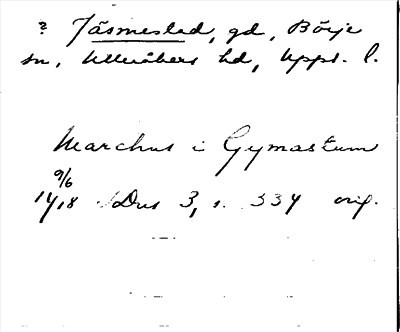 ? Jäsmestad, gd, Börje
sn, Ulleråkers hd, Uppl. l.
Marchus i Gymastum
9/6
1418 Dus 3, s. 334 orig.